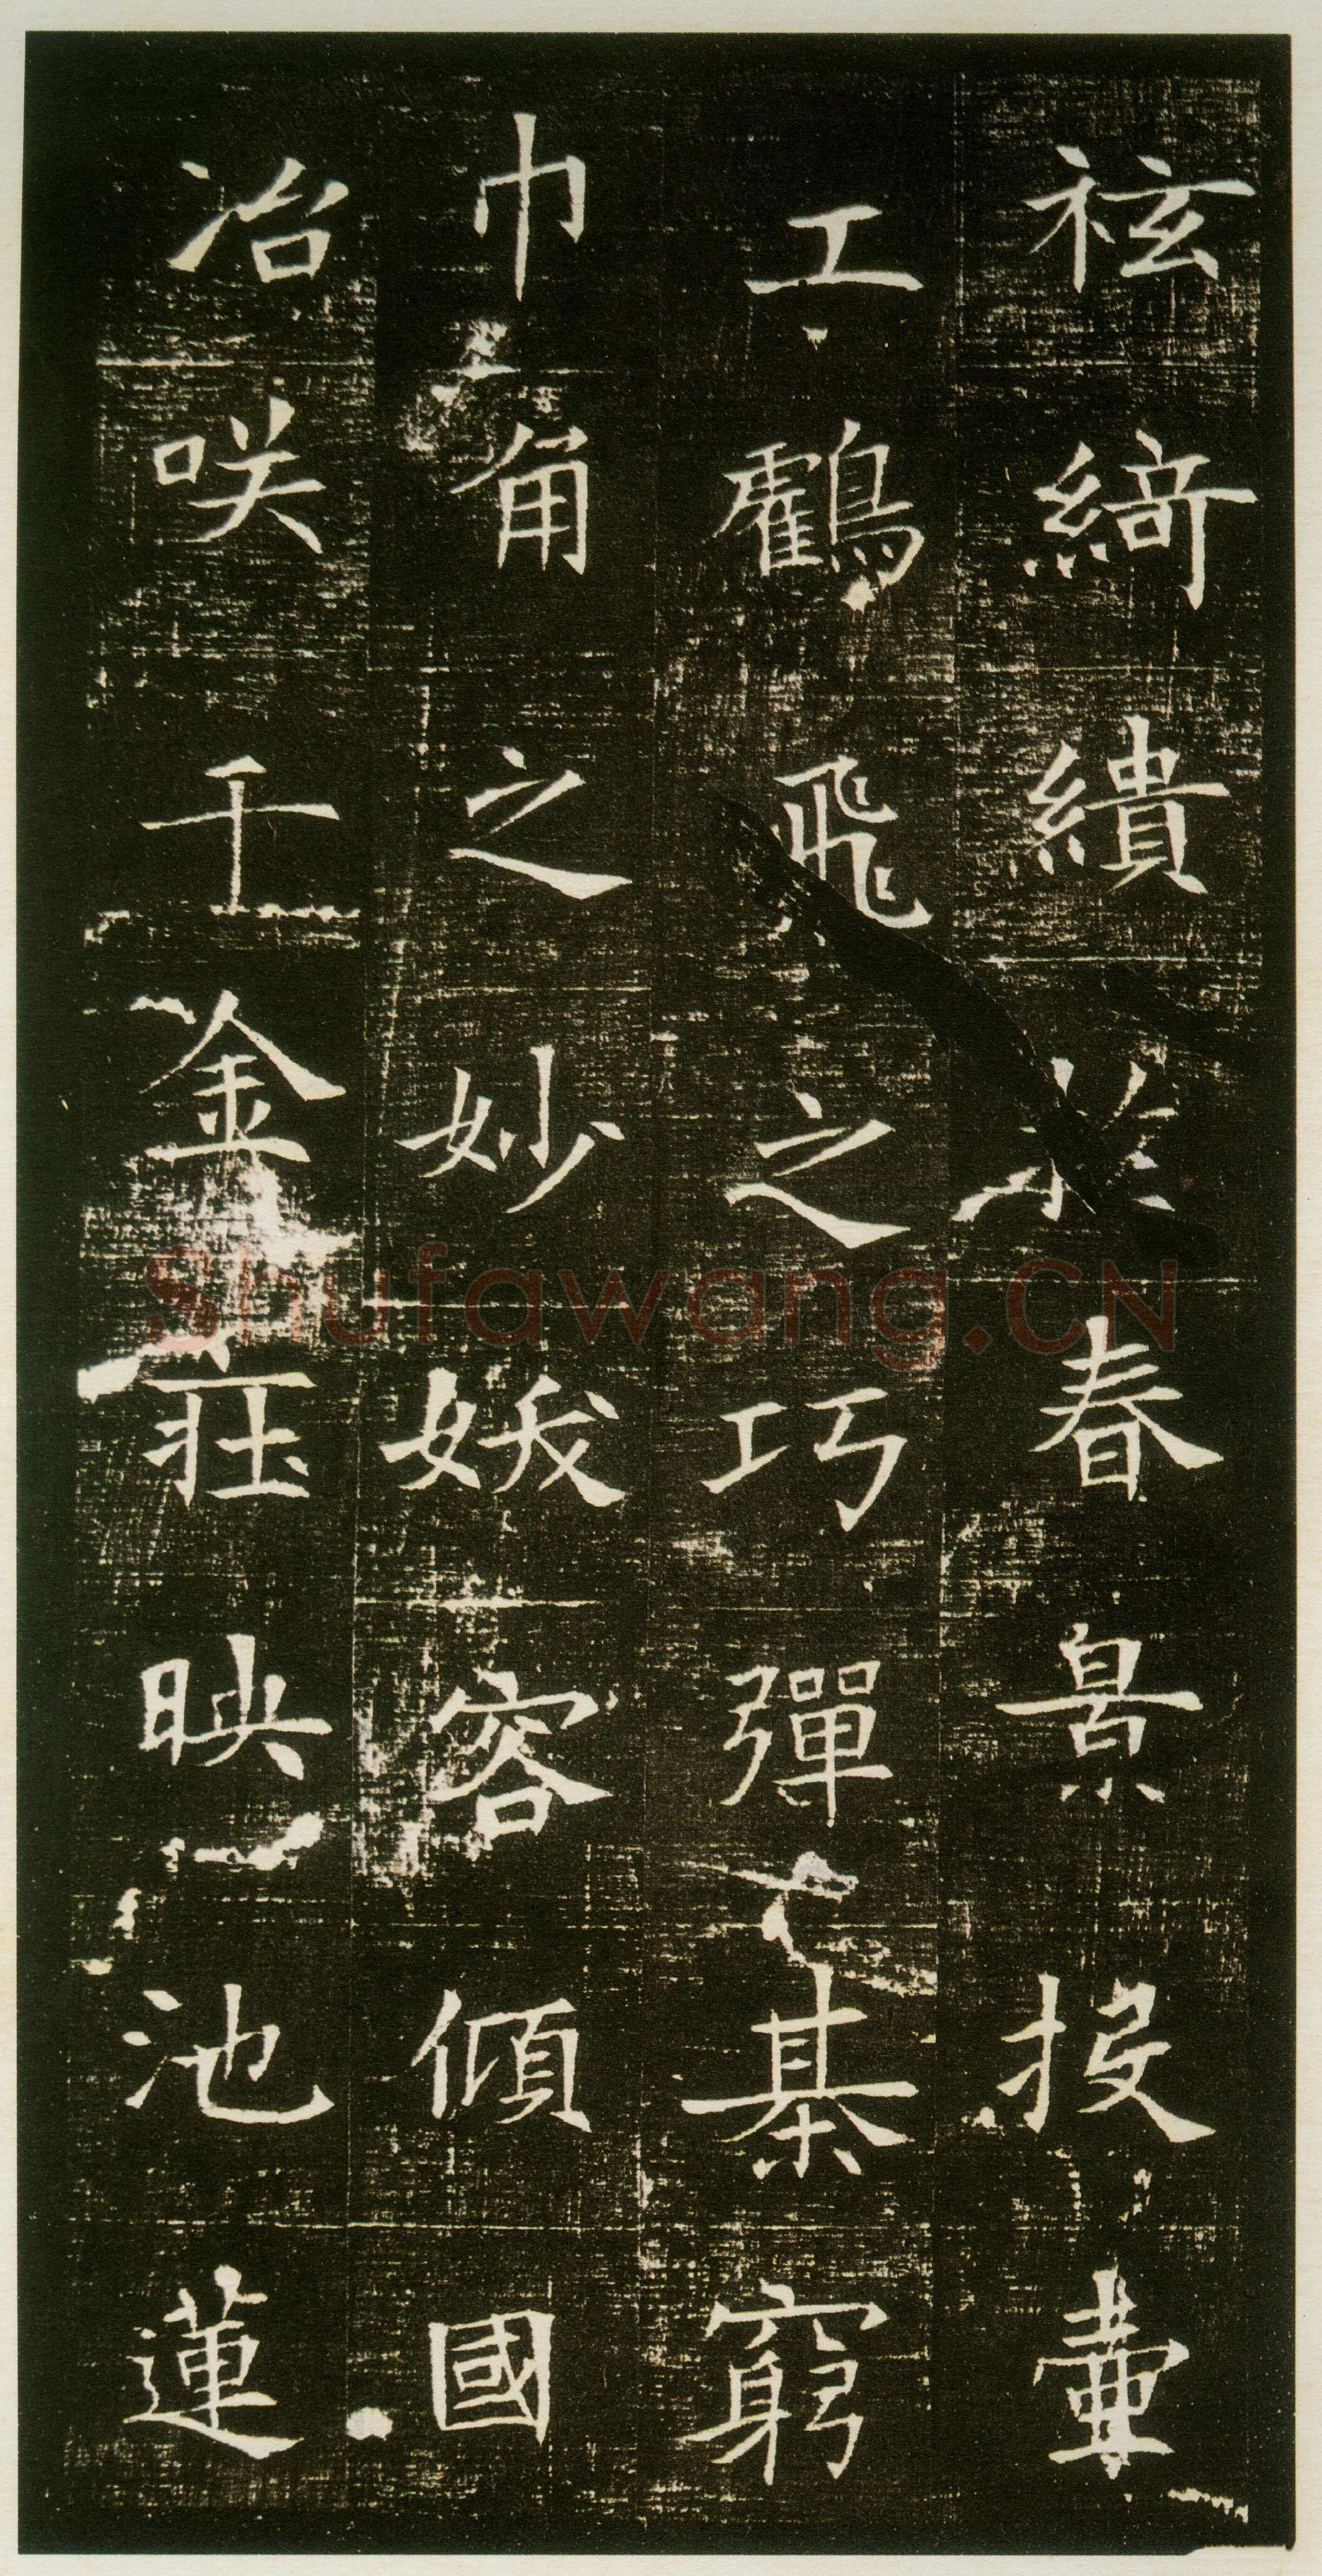 袨綺繢於春景投壺
工鸖飛之巧彈棊窮
巾角之妙妖容傾國
冶咲千金莊映池蓮
Shufawang.CN